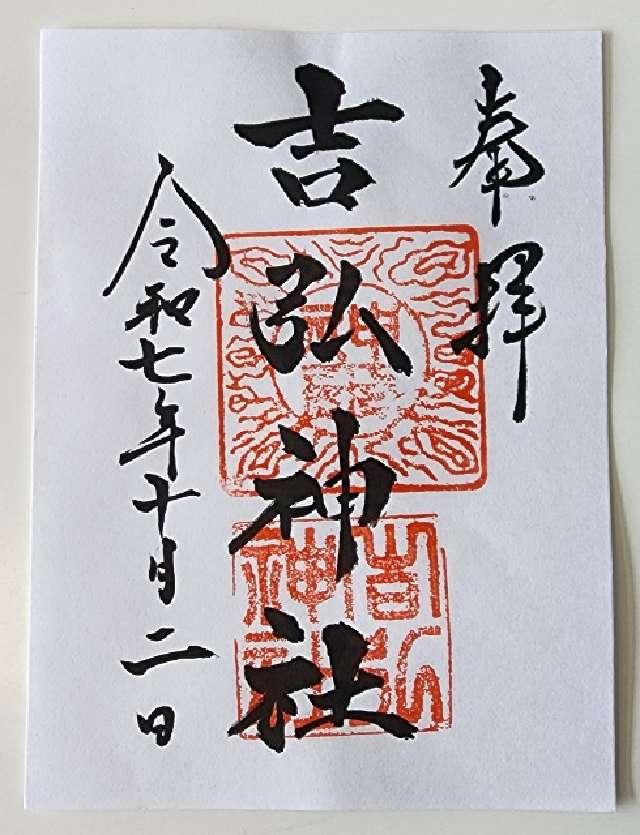 奉拝
吉弘神社
令和七年十月二日
吉弘
神社